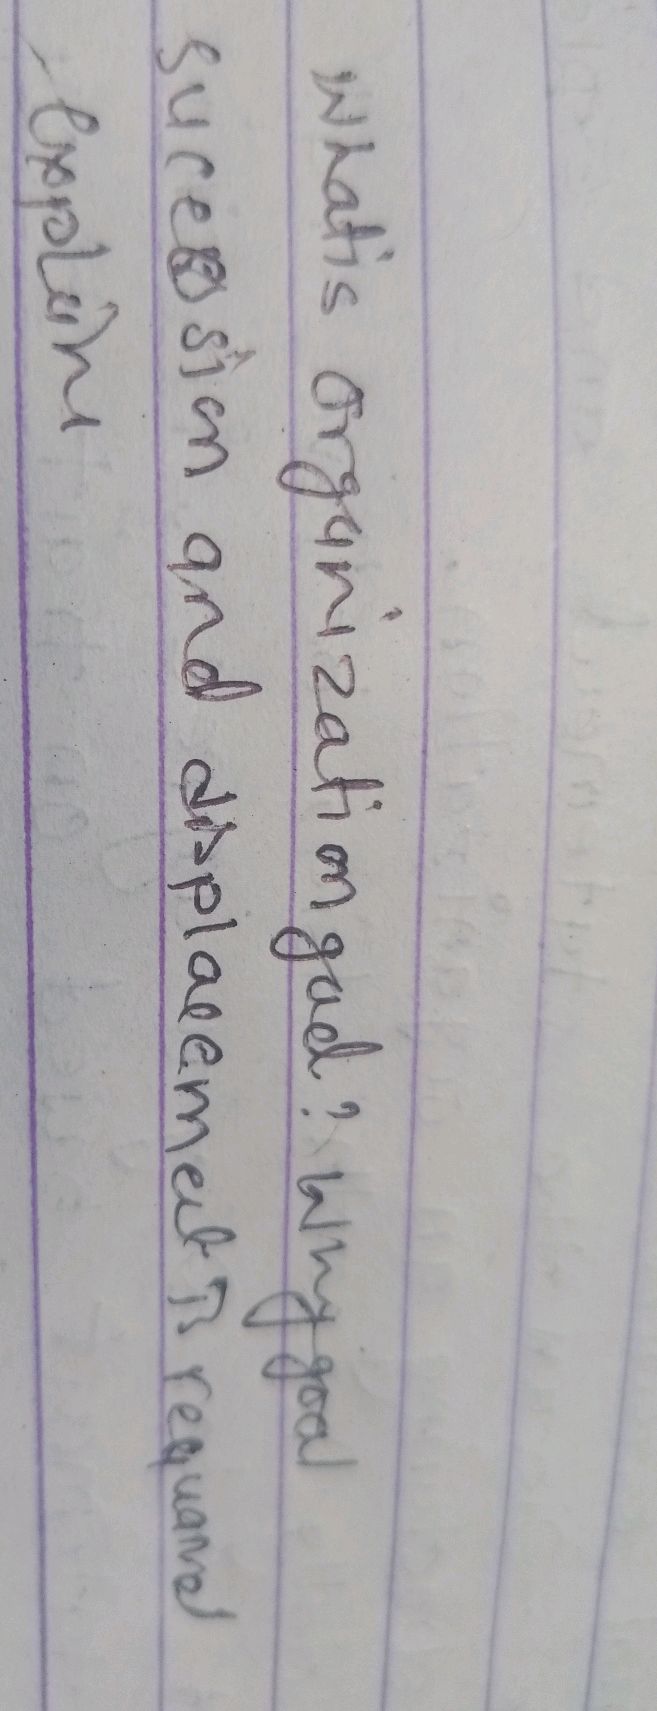 What is organization goal? Why goal
sucession and displacement is required
explain